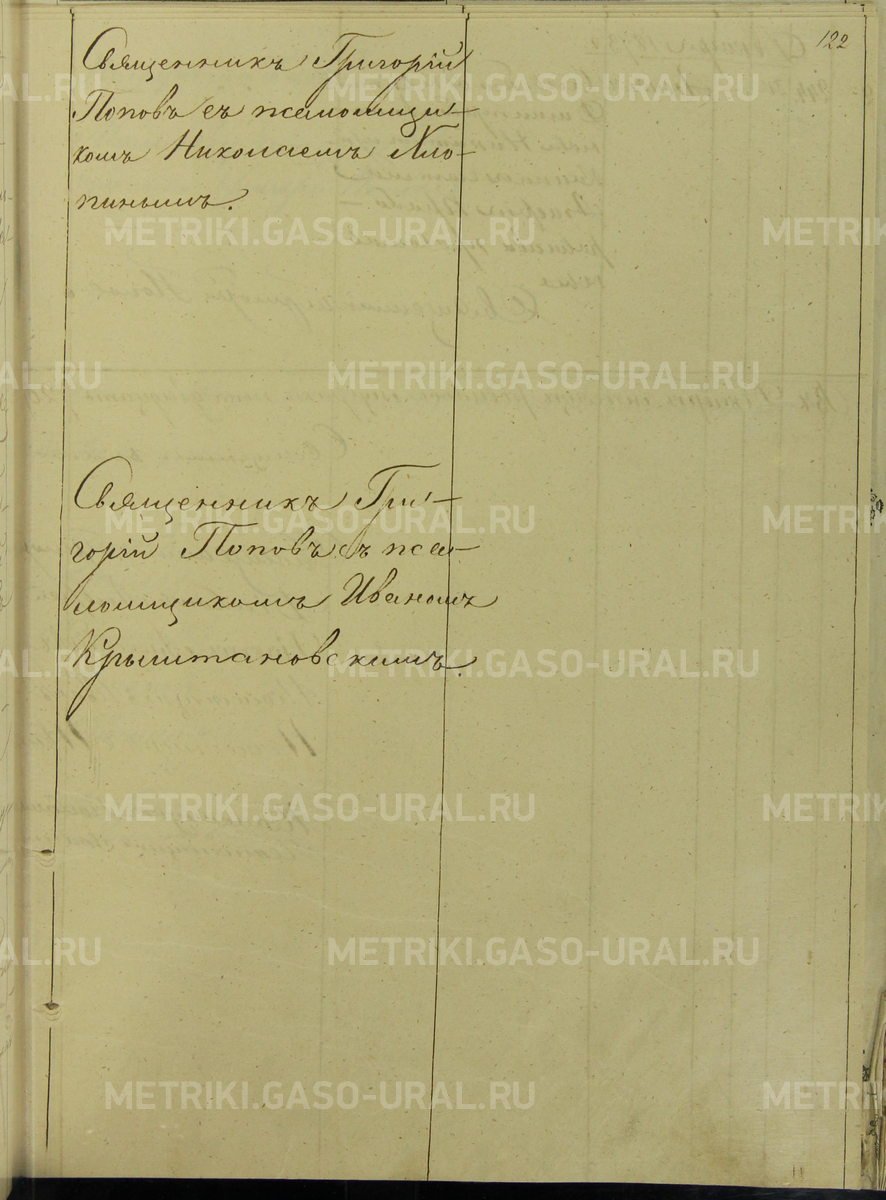 122
Священникъ Григорій
Поповъ съ псаломщи-
комъ Николаемъ Хло-
пинымъ.
Священникъ Гри-
горій Поповъ съ пса-
ломщикомъ Иваномъ
Крыштановскимъ.
METRIKI.GASO-URAL.RU